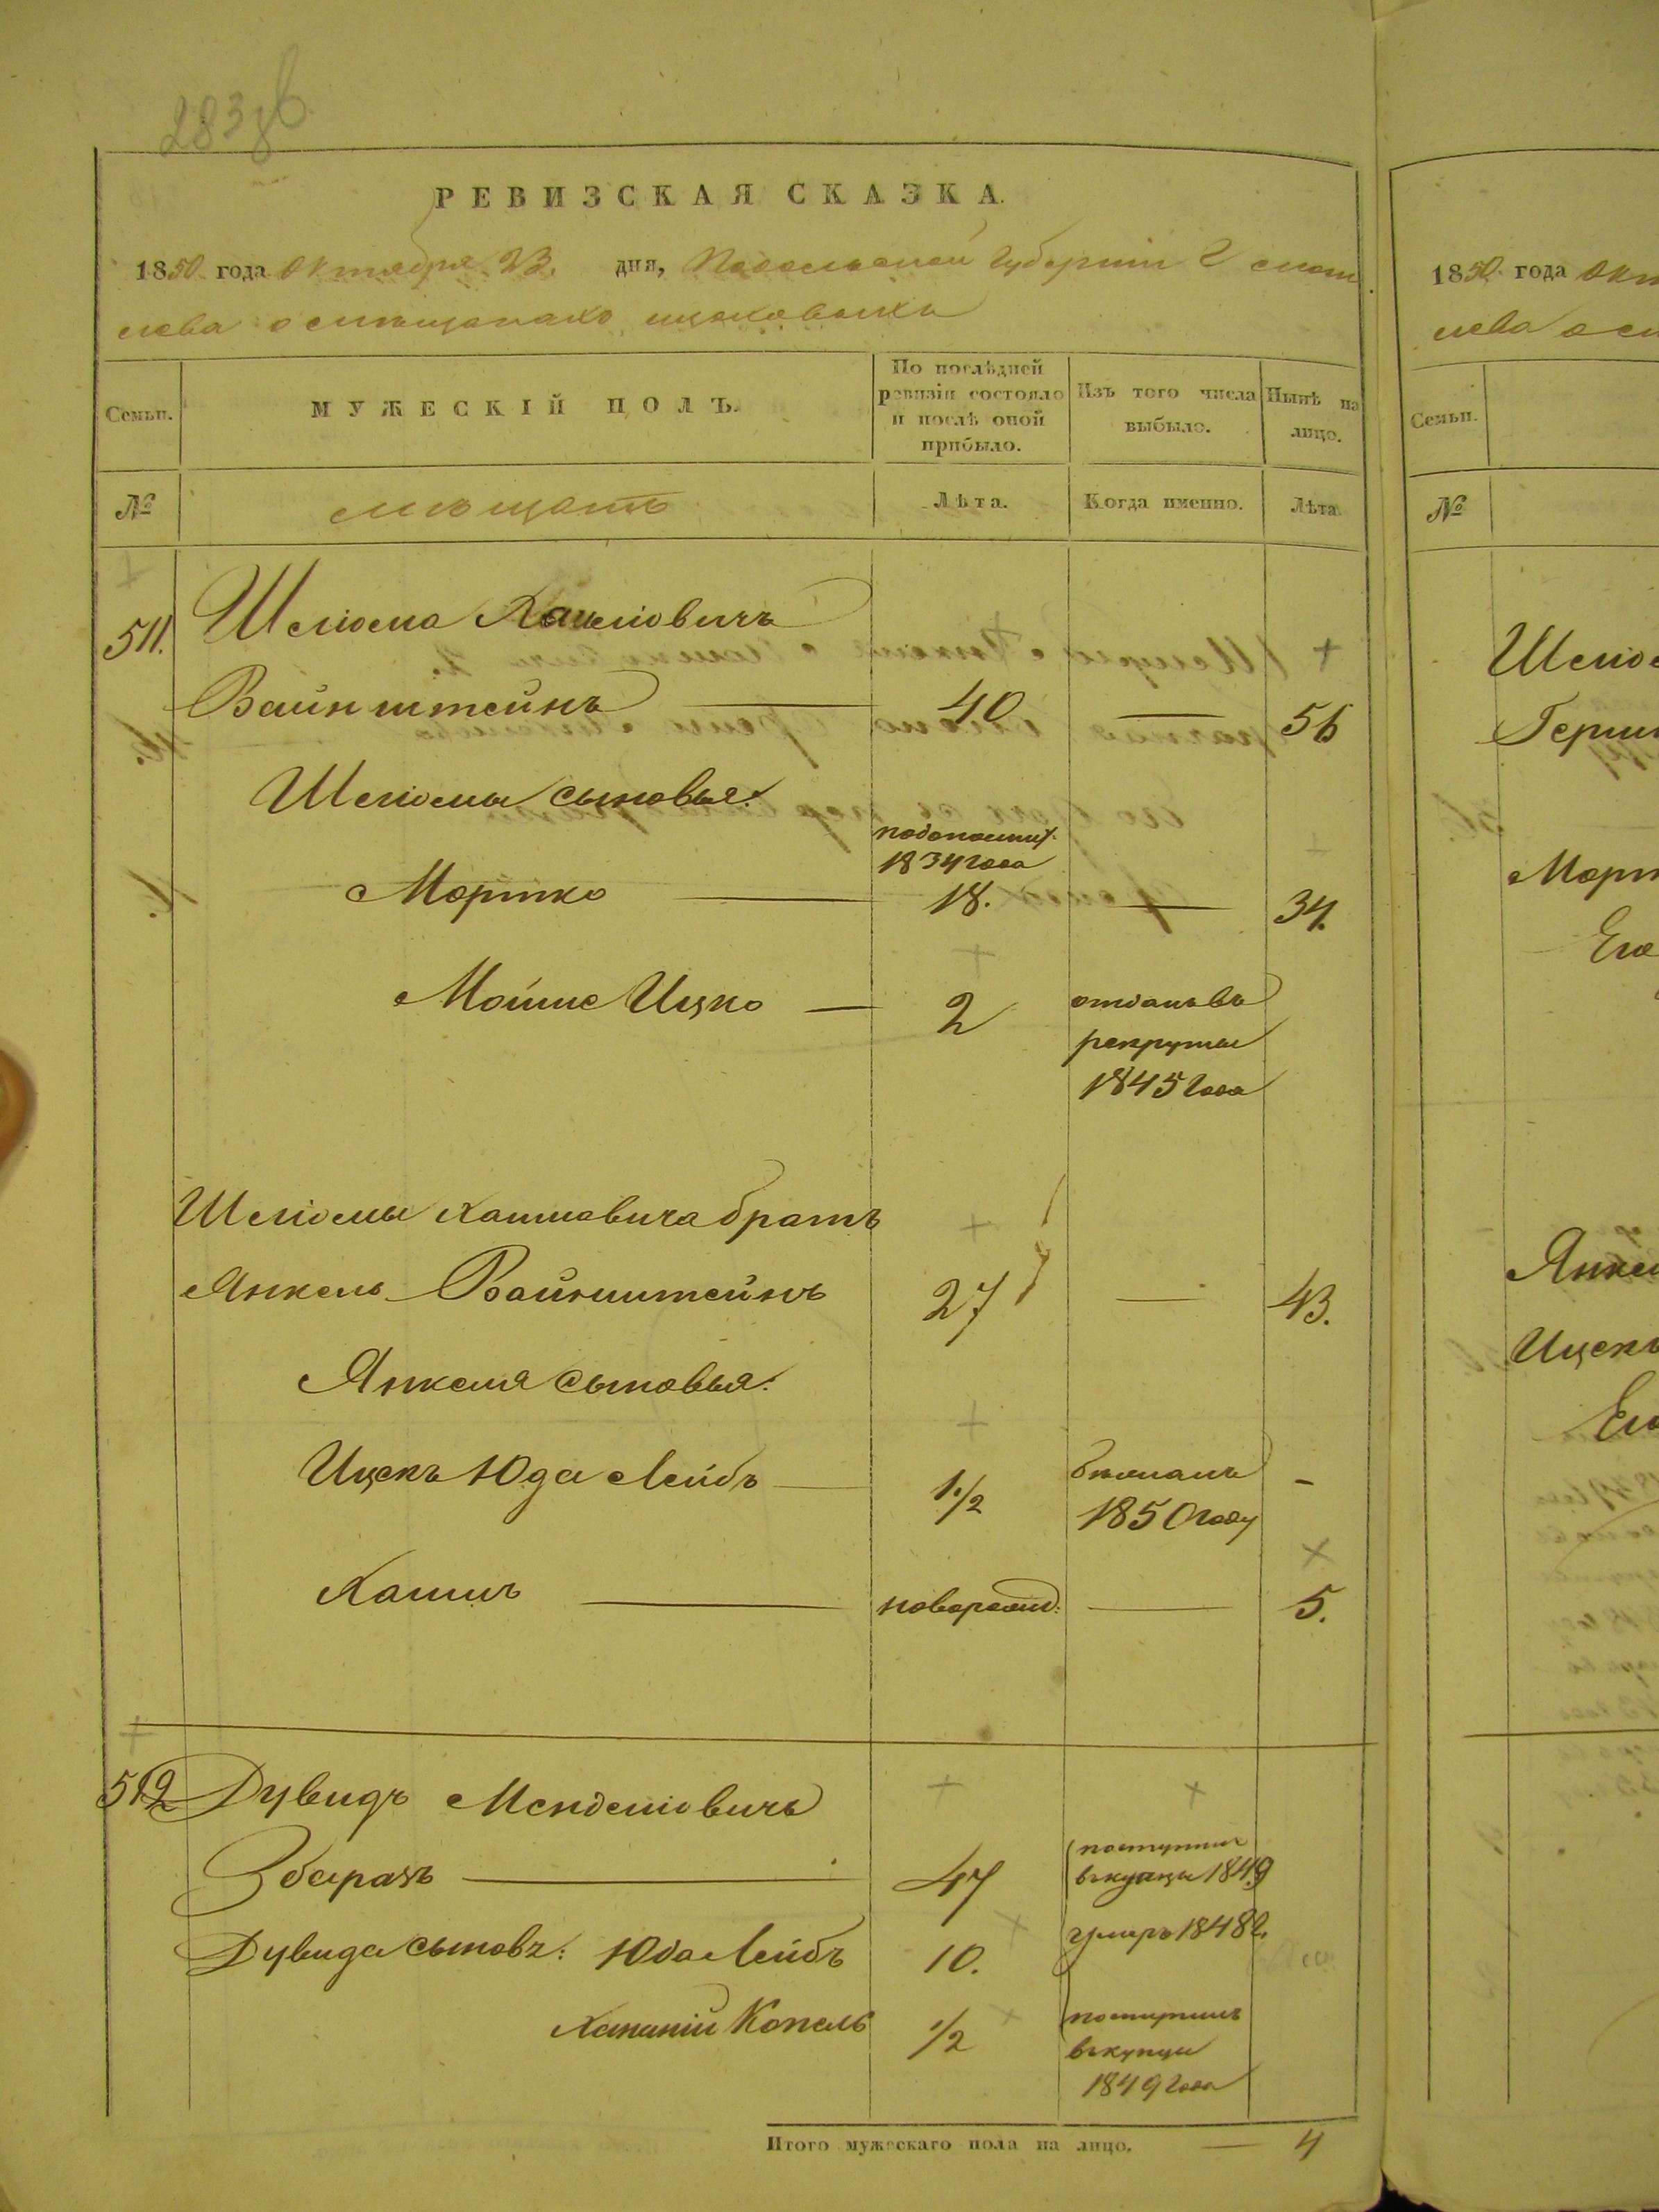 283 об.
РЕВИЗСКАЯ СКАЗКА.
1850 года Октября 23. дня, Подольской Губерніи Г моги
лева о мѣщанахъ
Семьи.
МУЖЕСКІЙ ПОЛЪ.
По послѣдней ревизіи состояло и послѣ оной прибыло.
Изъ того числа выбыло.
Нынѣ на лицо.
№
мѣщанъ
Лѣта.
Когда именно.
Лѣта.
511. Шліома Хаимовичъ
Вайнштейнъ 40 56
Шліомы сыновья:
1834 года
Мортко 18. 34.
Мойше Ицко 2 отданъ въ
рекруты
1845 года
Шліомы Хаимовича братъ
Янкель Вайнштейнъ 27 43.
Янкеля сыновья:
Ицекъ Юда Лейбъ 1/2
1850 году
Хаимъ новорожд: 5.
512 Дувидъ Мендельовичъ
Збаражъ 47 поступилъ
въ купцы 1849
Дувида сыновь: Юда Лейбъ 10. умеръ 1848 г.
Хананій Копель 1/2 поступилъ
въ купцы
1849 года
Итого мужескаго пола на лицо. 4
1850 года Окт
лева о мѣ
Семьи.
№
Шліо
Герш
Морт
Его
Янкел
Ицекъ
Его